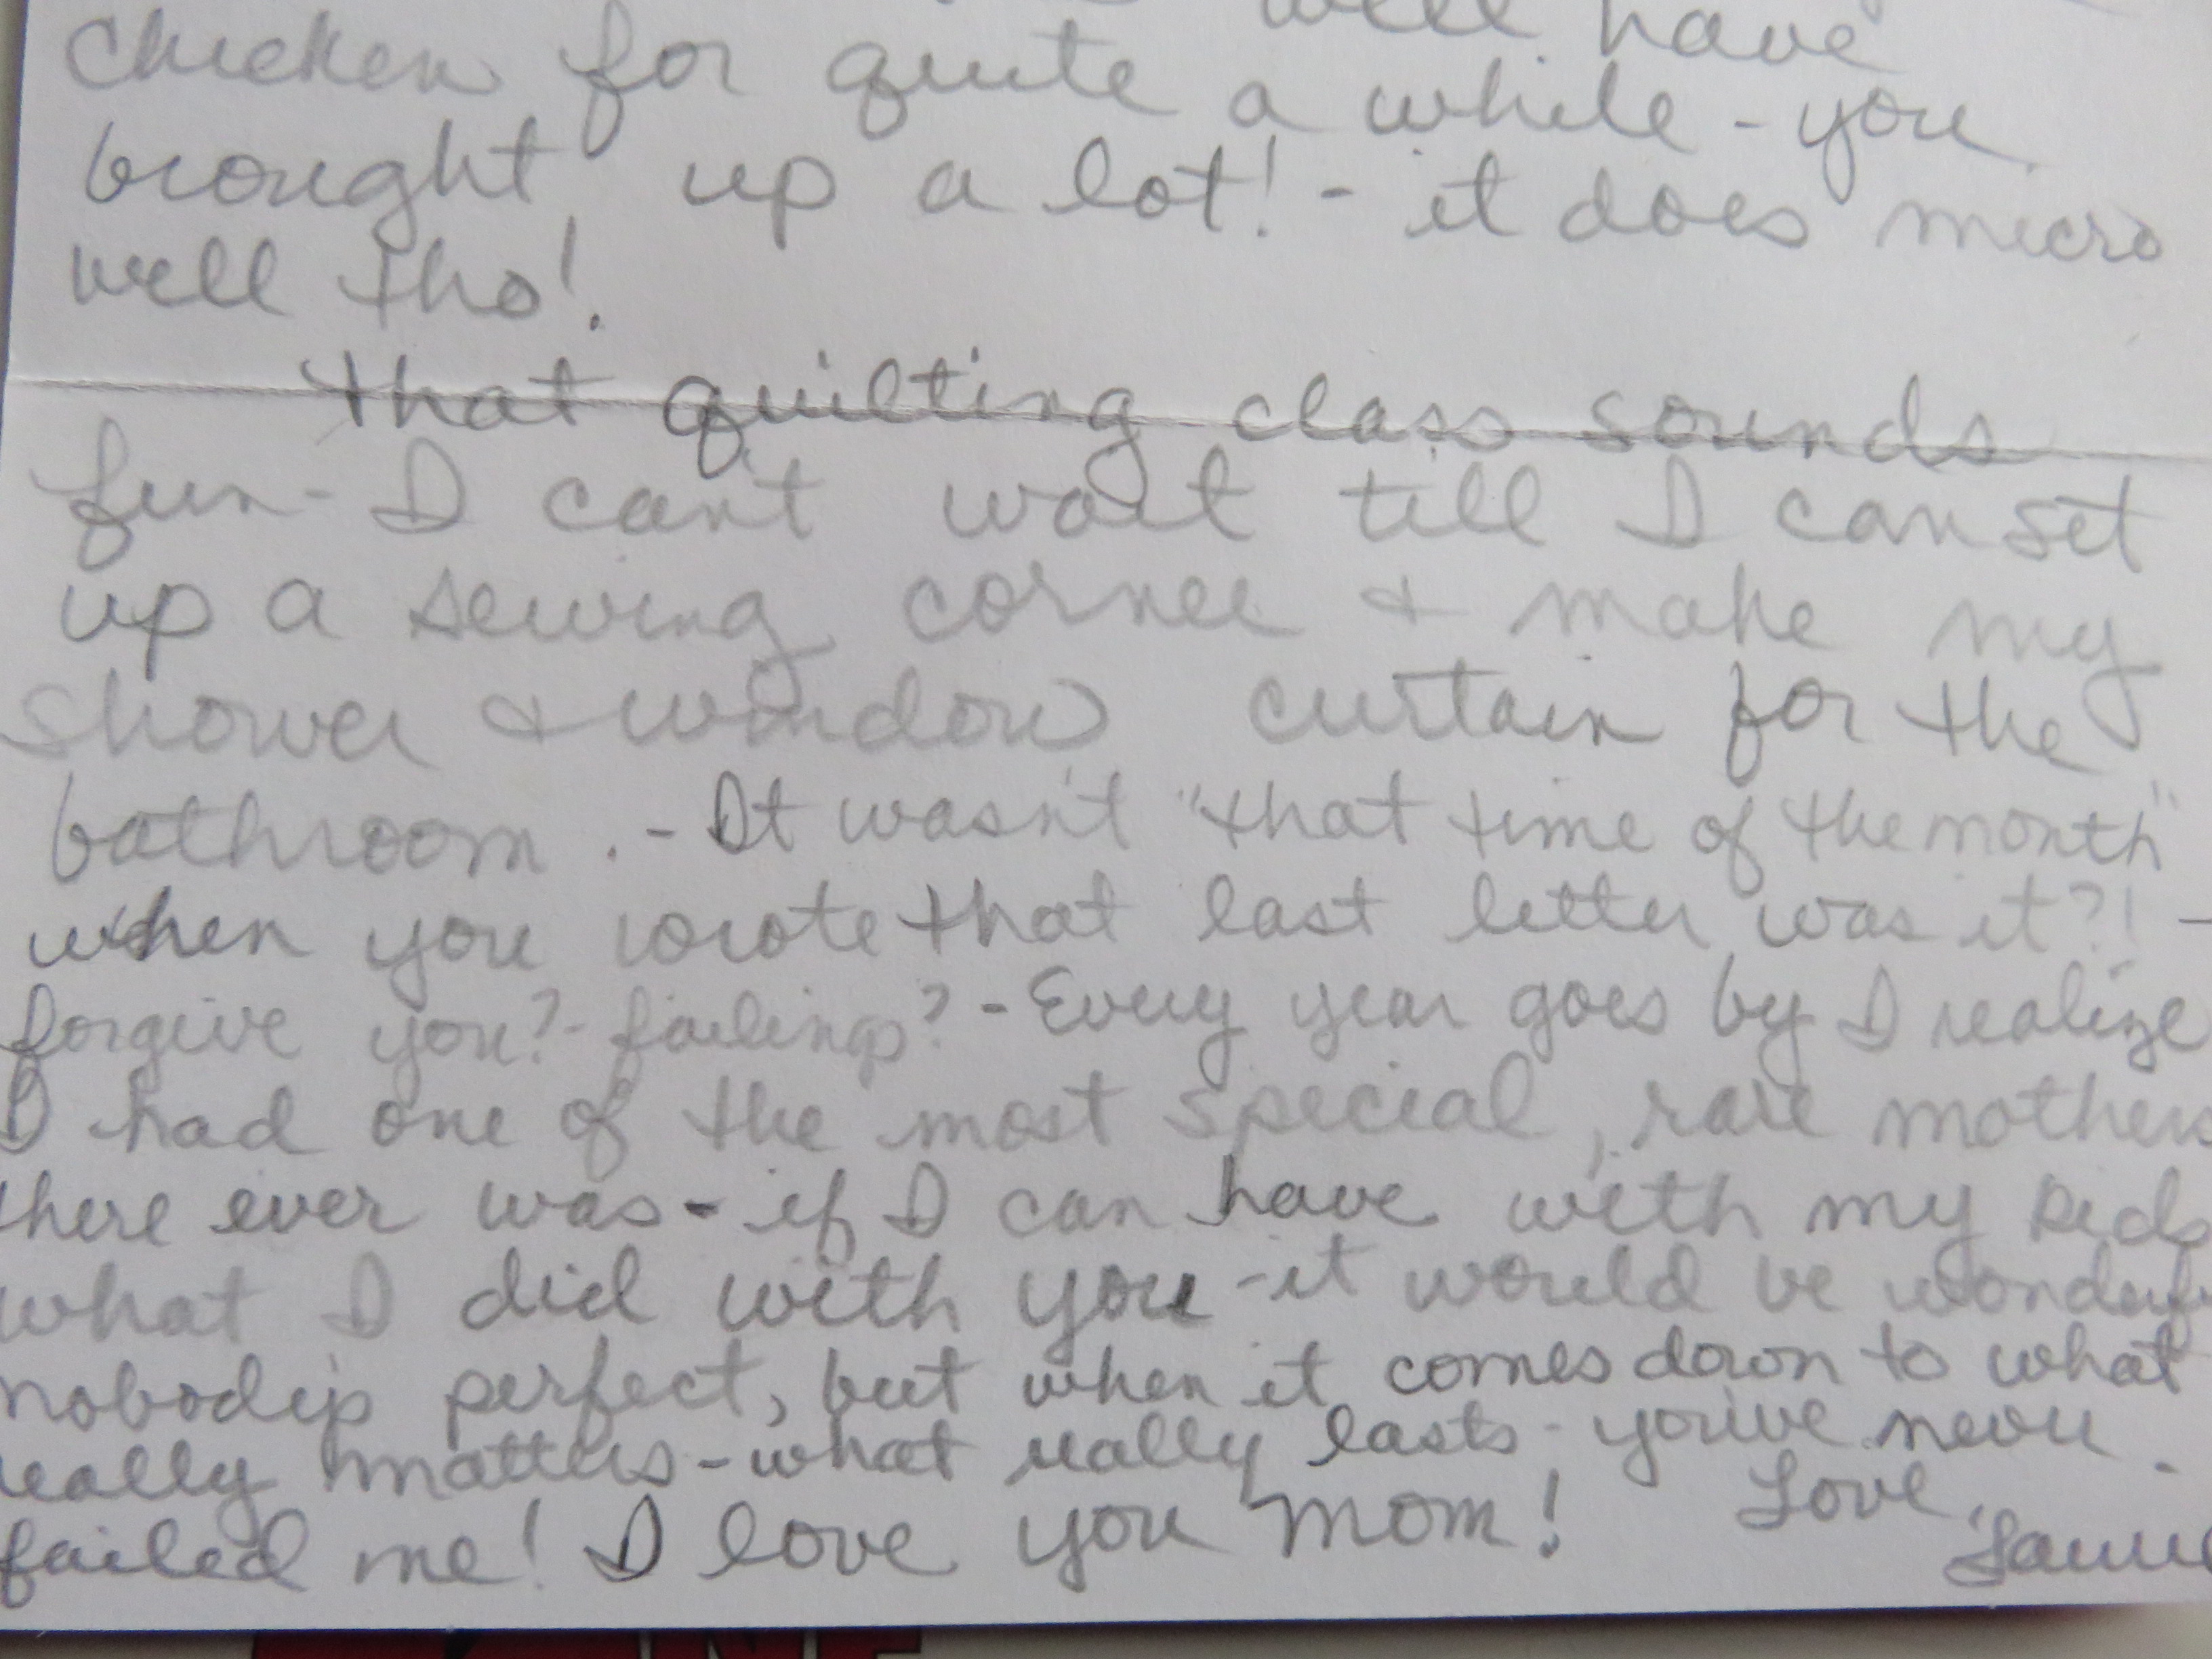 well have
chicken for quite a while - you
brought up a lot! - it does micro
well tho!
that quilting class sounds
fun - I can't wait till I can set
up a sewing corner & make my
shower & window curtain for the
bathroom. - It wasn't "that time of the month"
when you wrote that last letter was it?! -
forgive you? - failings? - Every year goes by I realize
I had one of the most special, rare mothers
there ever was - if I can have with my kids
what I did with you - it would be wonderf
nobody's perfect, but when it comes down to what
really matters - what really lasts - you've never
failed me! I love you mom! Love,